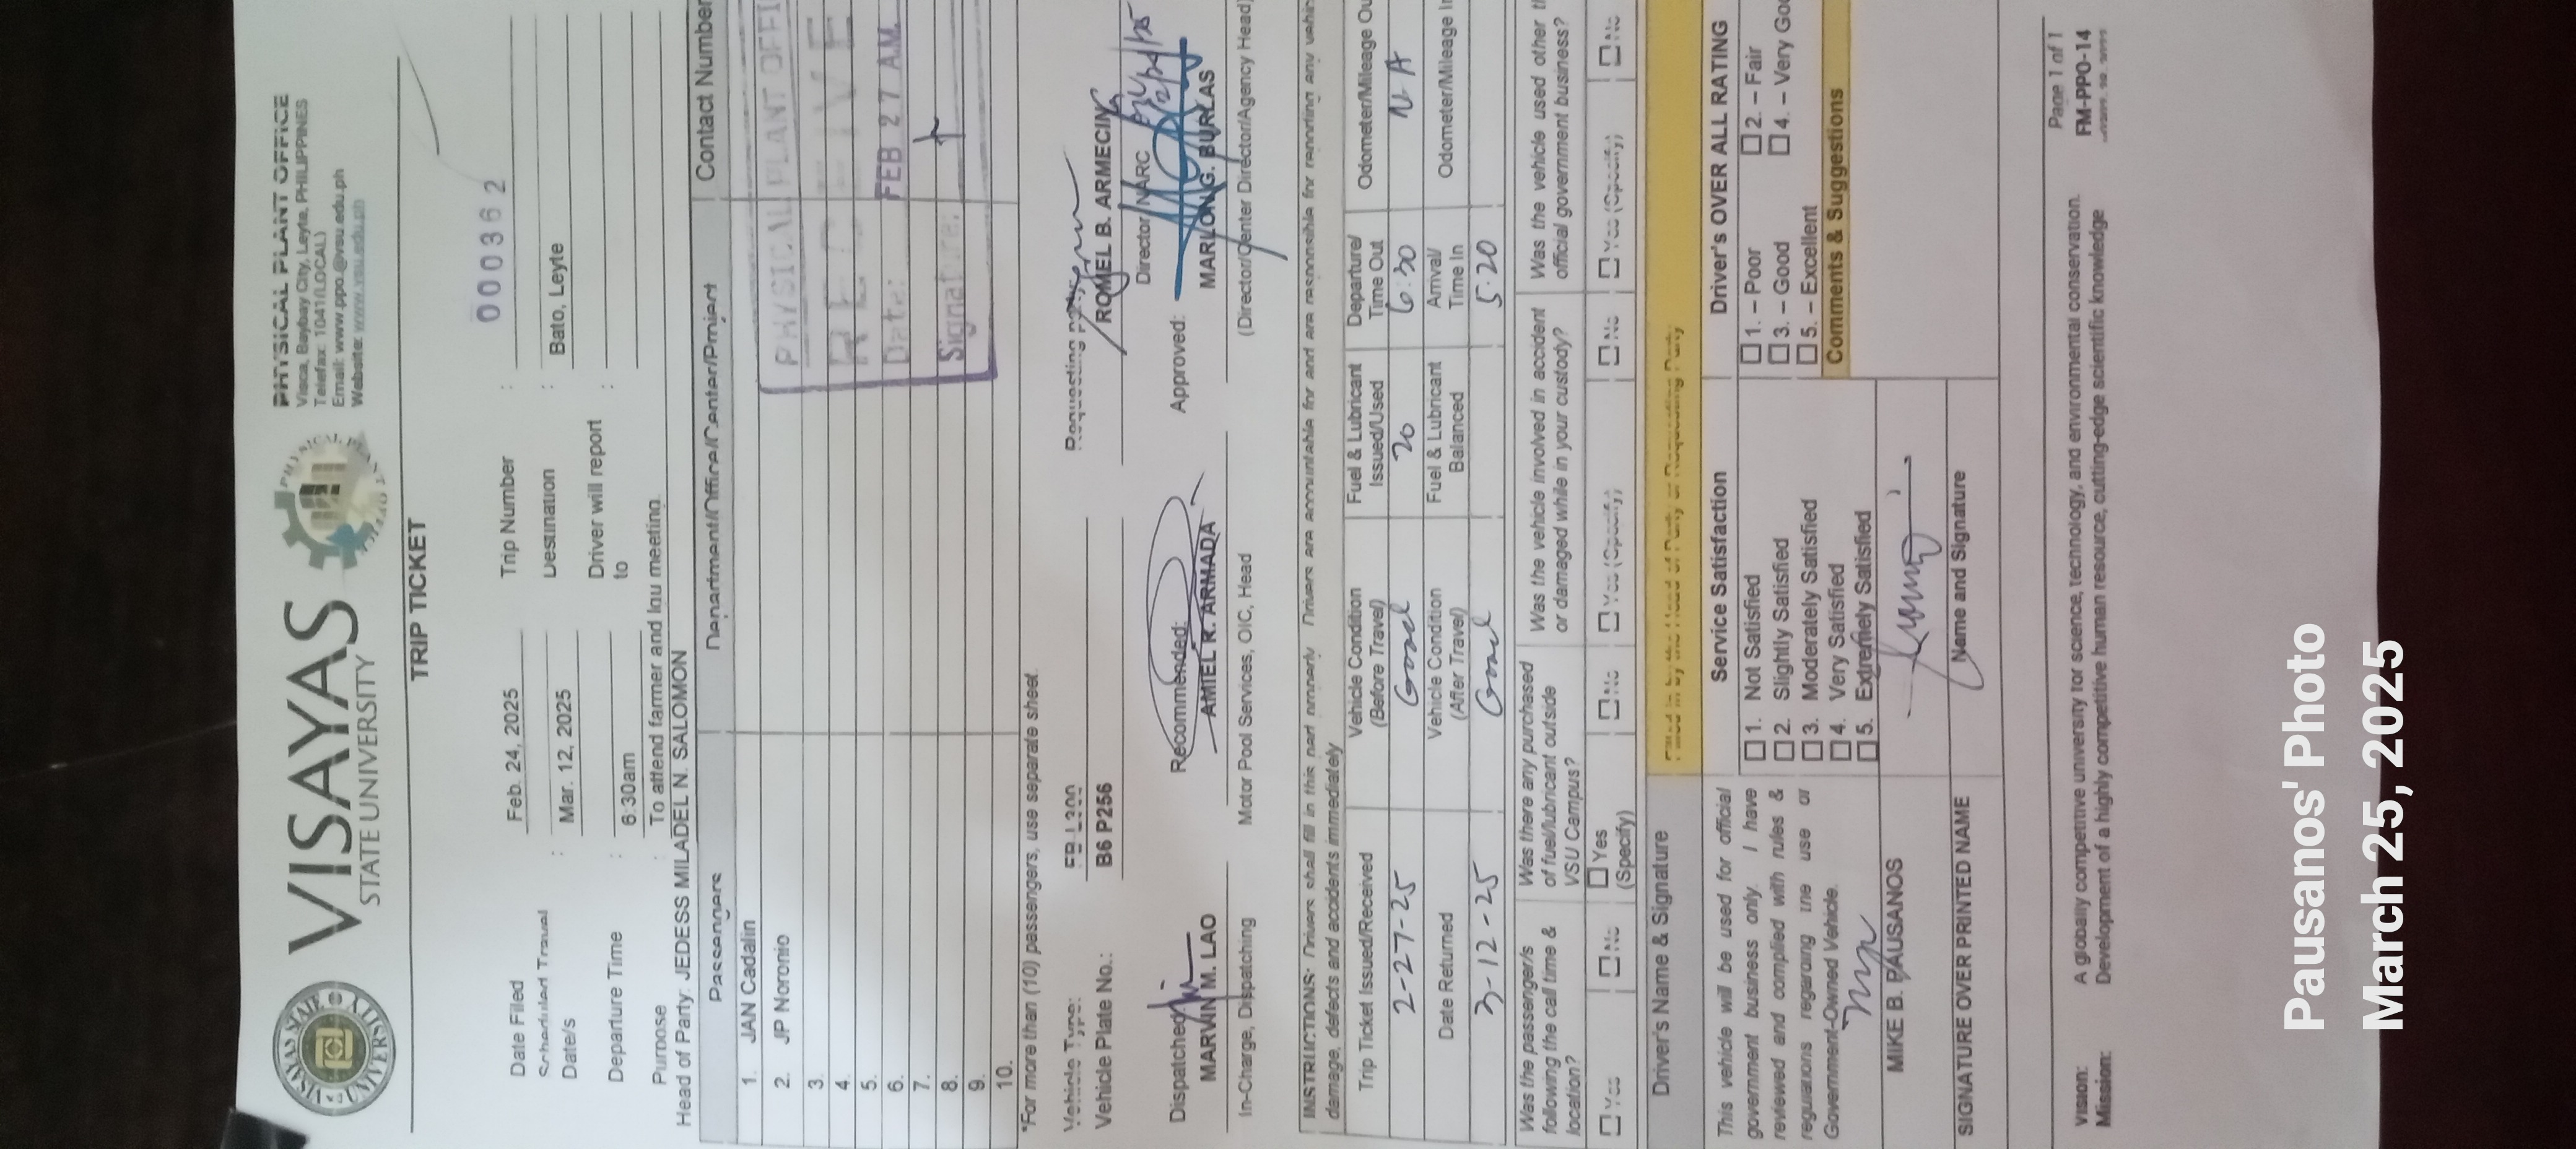 VISAYAS
STATE UNIVERSITY
PHYSICAL PLANT OFFICE
Visca, Baybay City, Leyte, PHILIPPINES
Telefax: 1041(LOCAL)
Email: www.ppo.@vsu.edu.ph
Website: www.vsu.edu.ph
TRIP TICKET
000362
Date Filed : Feb. 24, 2025 Trip Number :
Scheduled Travel Date/s : Mar. 12, 2025 Destination : Bato, Leyte
Departure Time : 6:30am Driver will report to :
Purpose : To attend farmer and lgu meeting.
Head of Party: JEDESS MILADEL N. SALOMON
Passengers Department/Office/Center/Project Contact Number
1. JAN Cadalin
2. JP Noronio
3.
4.
5.
6.
7.
8.
9.
10.
PHYSICAL PLANT OFFI
Date: FEB 27 AM
Signature:
*For more than (10) passengers, use separate sheet.
Vehicle Type: FB L300
Vehicle Plate No.: B6 P256
Requesting
ROMEL B. ARMECIN
Director NARC
Dispatched
MARVIN M. LAO
In-Charge, Dispatching
Recommended:
AMIEL R. ARMADA
Motor Pool Services, OIC, Head
Approved:
MARLON G. BURLAS
(Director/Center Director/Agency Head)
INSTRUCTIONS: Drivers shall fill in this part properly. Drivers are accountable for and are responsible for reporting any vehic
damage, defects and accidents immediately
Trip Ticket Issued/Received Vehicle Condition (Before Travel) Fuel & Lubricant Issued/Used Departure/ Time Out Odometer/Mileage Ou
2-27-25 Good 20 6:30 N A
Date Returned Vehicle Condition (After Travel) Fuel & Lubricant Balanced Arrival/ Time In Odometer/Mileage In
3-12-25 Good 5:20
Was the passenger/s following the call time & location? Was there any purchased of fuel/lubricant outside VSU Campus? Was the vehicle involved in accident or damaged while in your custody? Was the vehicle used other th official government business?
Yes No Yes (Specify) No Yes (Specify) No Yes (Specify) No
Driver's Name & Signature
This vehicle will be used for official
government business only. I have
reviewed and complied with rules &
regulations regarding the use of
Government-Owned Vehicle.
MIKE B. PAUSANOS
SIGNATURE OVER PRINTED NAME
Service Satisfaction
1. Not Satisfied
2. Slightly Satisfied
3. Moderately Satisfied
4. Very Satisfied
5. Extremely Satisfied
Name and Signature
Driver's OVER ALL RATING
1. – Poor 2. – Fair
3. – Good 4. – Very Goo
5. – Excellent
Comments & Suggestions
Vision: A globally competitive university for science, technology, and environmental conservation.
Mission: Development of a highly competitive human resource, cutting-edge scientific knowledge
Page 1 of 1
FM-PPO-14
Pausanos' Photo
March 25, 2025